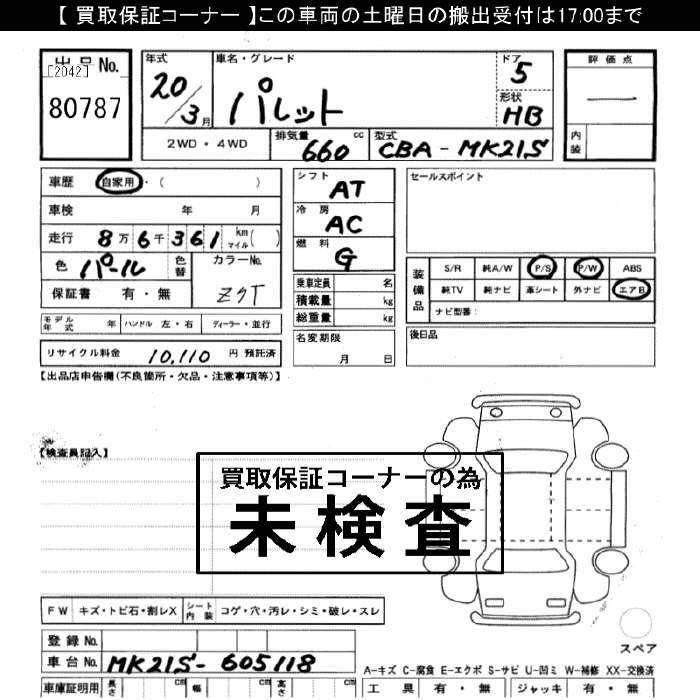 【 買取保証コーナー 】この車両の土曜日の搬出受付は17:00まで
出品 No.
[2042]
80787
年式
20/3月
車名・グレード
パレット
ドア
5
形状
HB
2WD・4WD
排気量 cc
660
型式
CBA-MK21S
評価点
—
内装
車歴 自家用・( )
車検 年 月
走行 8万6千361 km マイル( )
色 パール 色替
カラーNo.
ZCT
保証書 有・無
モデル年式 年 ハンドル 左・右 ディーラー・並行
リサイクル料金 10,110 円 預託済
シフト
AT
冷房
AC
燃料
G
乗車定員 名
積載量 kg
総重量 kg
名変期限
月 日
セールスポイント
装備品
S/R 純A/W P/S P/W ABS
純TV 純ナビ 革シート 外ナビ エアB
ナビ型番:
後日品
【出品店申告欄(不良箇所・欠品・注意事項等)】
【検査員記入】
買取保証コーナーの為
未検査
FW キズ・トビ石・割レX シート内装 コゲ・穴・汚レ・シミ・破レ・スレ
登録 No.
車台 No. MK21S-605118
車庫証明用 長さ cm 幅 cm 高さ cm
スペア
A-キズ C-腐食 E-エクボ S-サビ U-凹ミ W-補修 XX-交換済
工具 有・無 ジャッキ 有・無